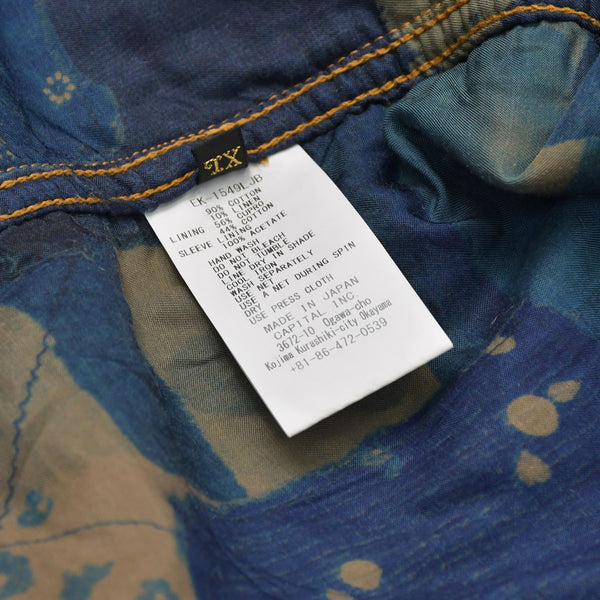 XL
EK-1549LJB
90% COTTON
10% LINEN
LINING 56% CUPRO
44% COTTON
SLEEVE LINING
100% ACETATE
HAND WASH
DO NOT BLEACH
DO NOT TUMBLE
LINE DRY IN SHADE
COOL IRON
WASH SEPARATELY
USE A NET DURING SPIN
DRY
USE PRESS CLOTH
MADE IN JAPAN
CAPITAL INC
3672-10, Ogawa-cho
Kojima Kurashiki-city Okayama
+81-86-472-0539